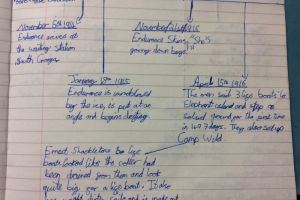 November 5th 1914
Endurance arrives at
the waiting station
South Georgia
November 21st 1915
Endurance Sinks, "She's
going down boys"
January 18th 1915
Endurance is surrounded
by the ice, is put at an
angle and begins drifting.
April 15th 1916
The men sail 3 life boats to
Elephant island and step on
solid ground for the first time
in 497 days. They also set up
Camp Wild.
Ernest Shackletons
boats looked like the
had
been from them and look
quite big for a life boat. It also